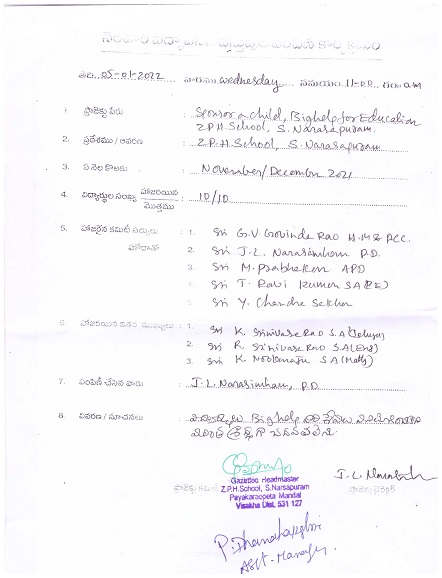 తేది. 05-01-2022 వారము Wednesday సమయం. 11-00 గం. a.m
1. ప్రాజెక్టు పేరు : Sponsor a child, Bighelp for Education
Z.P.H. School, S. Narasapuram.
2. ప్రదేశము / ఆవరణ : Z.P.H. School, S. Narasapuram
3. ఏ నెల కొఱకు : November/December 2021
4. విద్యార్థుల సంఖ్య హాజరయిన / మొత్తము : 10/10
5. హాజరైన కమిటీ సభ్యులు : 1. Sri G.V Govinda Rao H.M &
హోదాతో 2. Sri J.L. Narasimham P.D.
3. Sri M. Prabhakar APD
4. Sri T. Ravi Kumar SA (PE)
5. Sri Y. Chandra Sekhar
6. హాజరయిన ఇతర ముఖ్యులు : 1. Sri K. Srinivasa Rao S.A (Telugu)
2. Sri R. Srinivasa Rao S.A (Eng)
3. Sri K. Nookaraju S.A (Maths)
7. పంపిణీ చేసిన వారు : J.L. Narasimham, P.D.
8. వివరణ / సూచనలు : Bighelp
Gazetted Headmaster
Z.P.H.School, S.Narsapuram
Payakaraopeta Mandal
Visakha Dist. 531 127
ప్రాజెక్టు కమిటీ
Asst. Manager